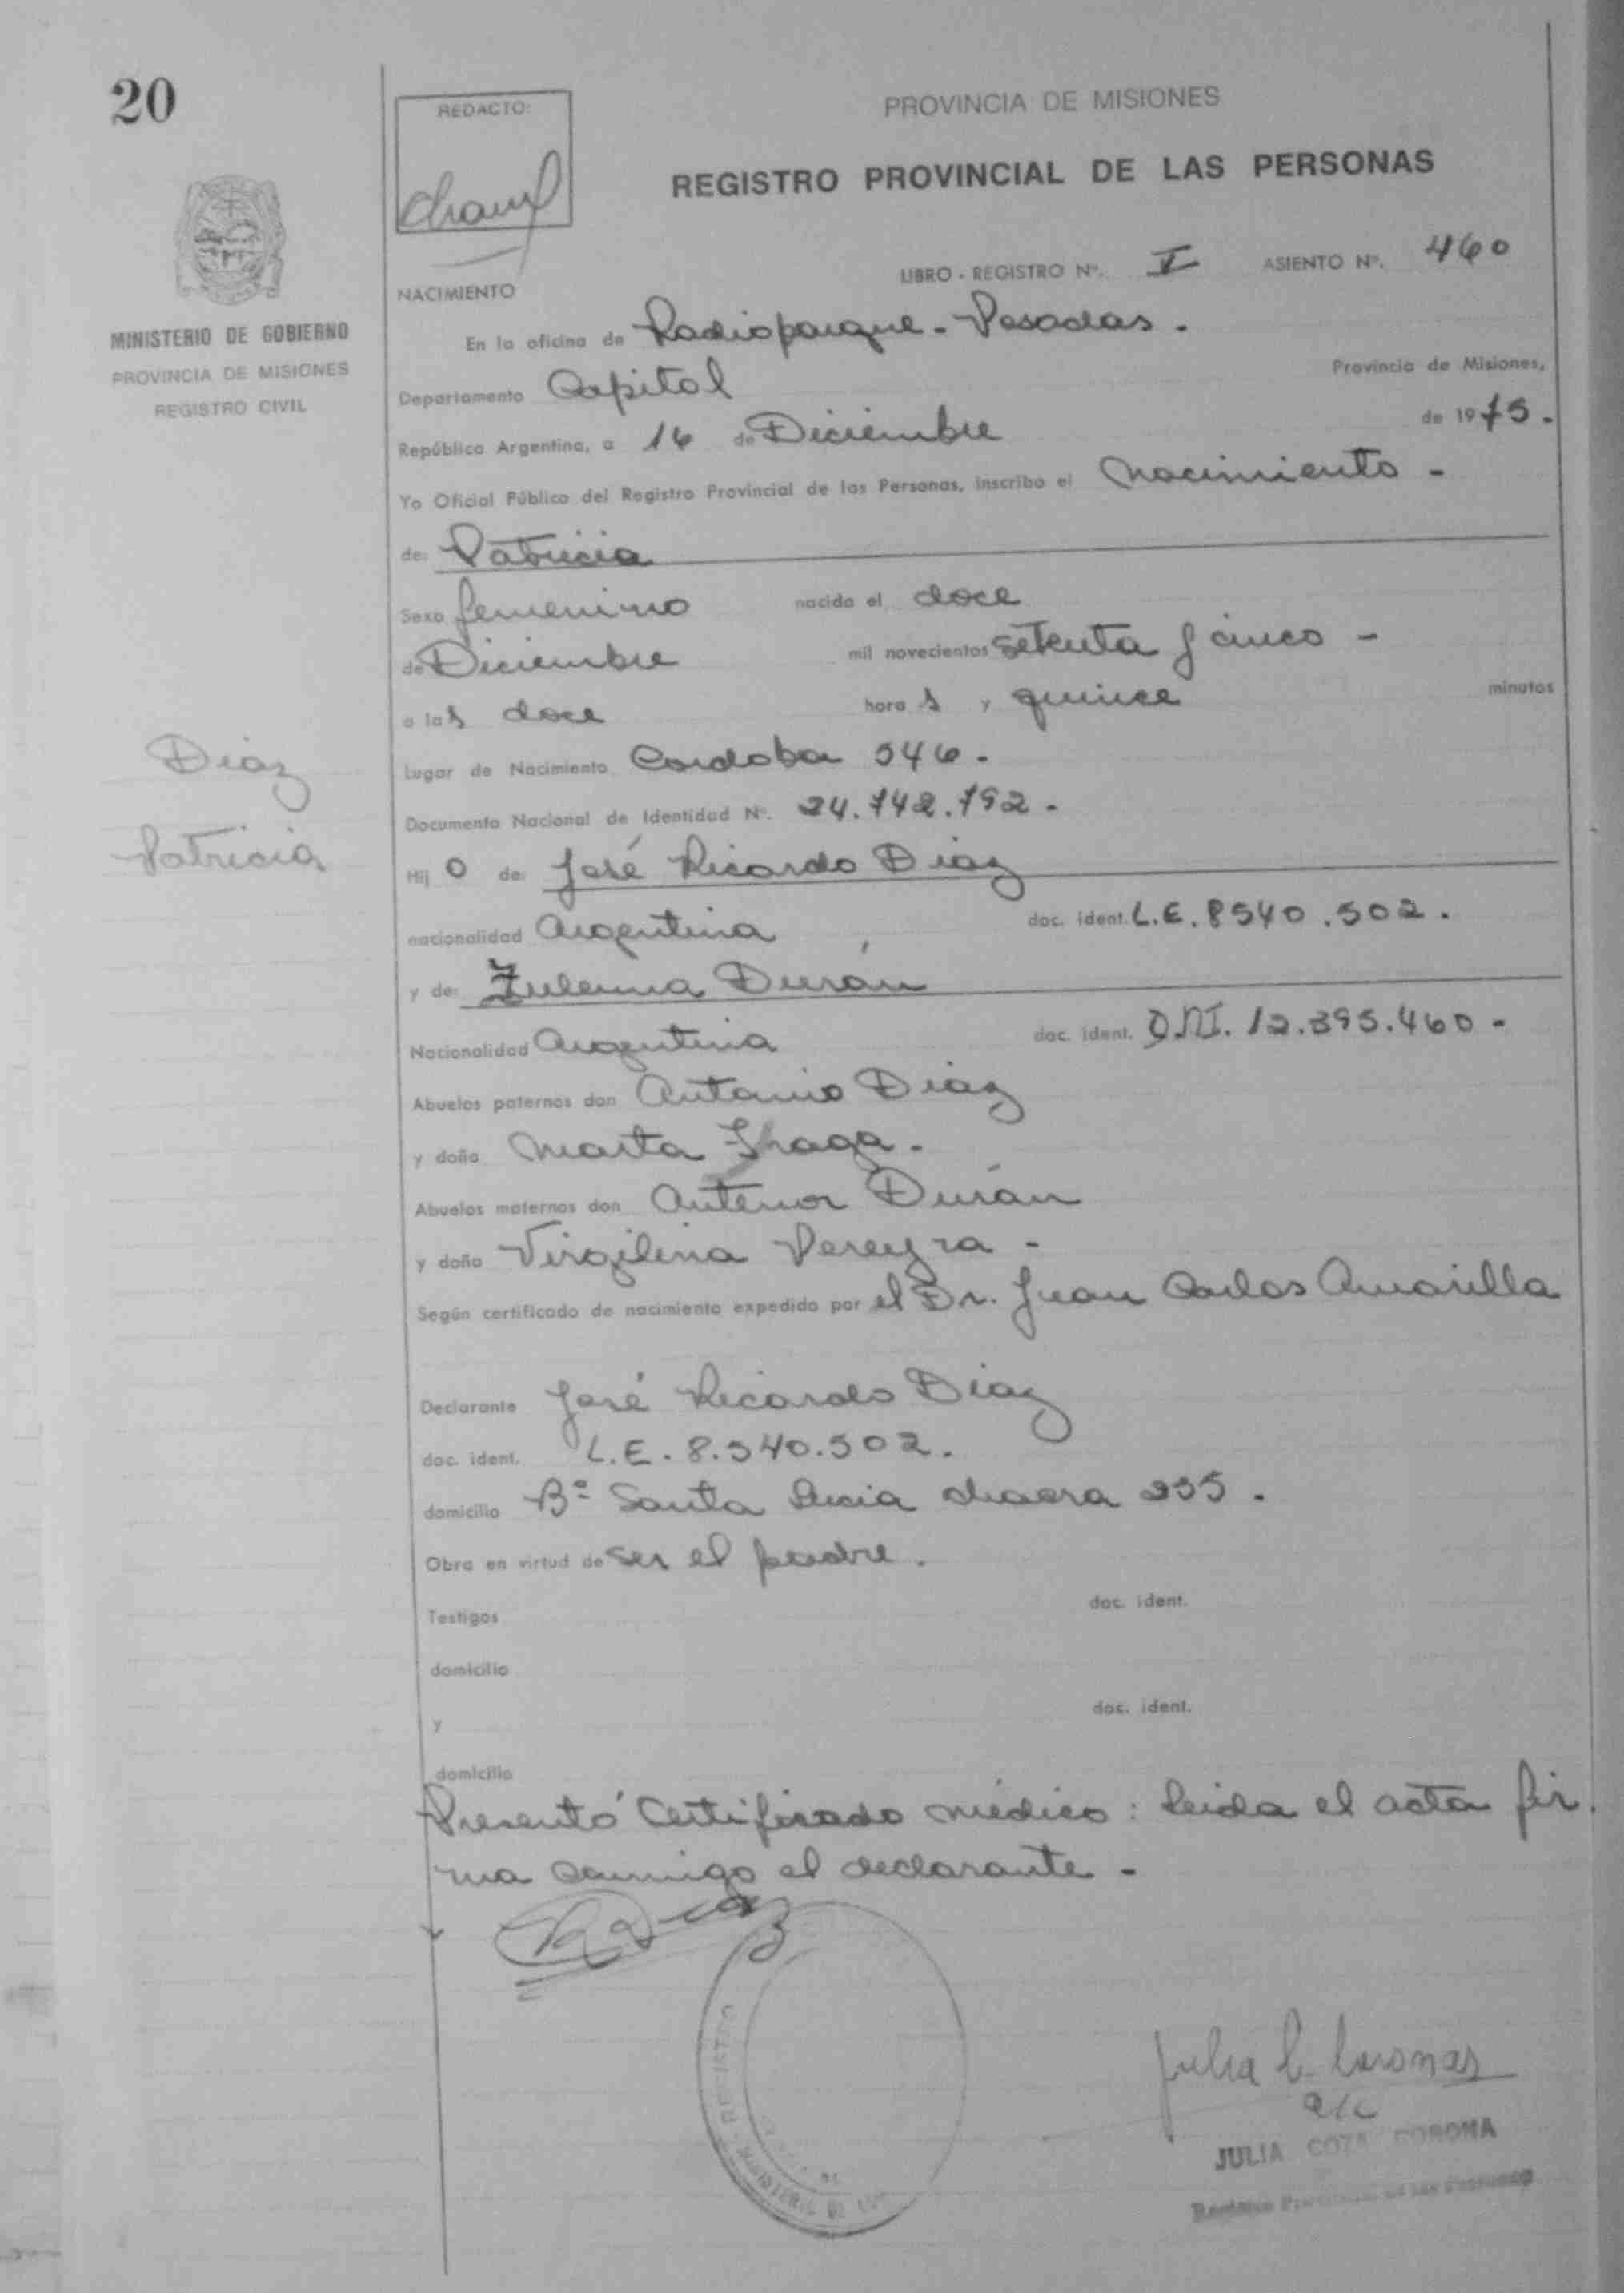 20
REDACTO:
PROVINCIA DE MISIONES
REGISTRO PROVINCIAL DE LAS PERSONAS
LIBRO - REGISTRO Nº. I ASIENTO Nº. 460
NACIMIENTO
MINISTERIO DE GOBIERNO
PROVINCIA DE MISIONES
REGISTRO CIVIL
En la oficina de Radioparque - Posadas.
Departamento Capital Provincia de Misiones,
República Argentina, a 16 de Diciembre de 1975.
Yo Oficial Público del Registro Provincial de las Personas, inscribo el nacimiento -
de: Patricia
Sexo femenino nacido el doce
de Diciembre mil novecientos setenta y cinco -
a las doce horas y quince minutos
Lugar de Nacimiento Cordoba 546.
Documento Nacional de Identidad Nº. 24.742.792.
Díaz
Patricia
Hij o de: José Ricardo Diaz
nacionalidad Argentina doc. ident. L.E. 8540.502.
y de: Zulema Durán
Nacionalidad Argentina doc. ident. D.N.I. 12.395.460 -
Abuelos paternos don Antonio Diaz
y doña Marta
Abuelos maternos don Antenor Durán
y doña Virgilina Pereyra -
Según certificado de nacimiento expedido por el Dr. Juan Carlos Amarilla
Declarante José Ricardo Diaz
doc. ident. L.E. 8.540.502.
domicilio Bº Santa Lucia chacra 255.
Obra en virtud de ser el padre.
Testigos doc. ident.
domicilio
y doc. ident.
domicilio
Presentó Certificado médico: leida el acta fir
ma conmigo el declarante -
REGISTRO - MINISTERIO DE
Julia C. Coronas
a/c
JULIA CORONA